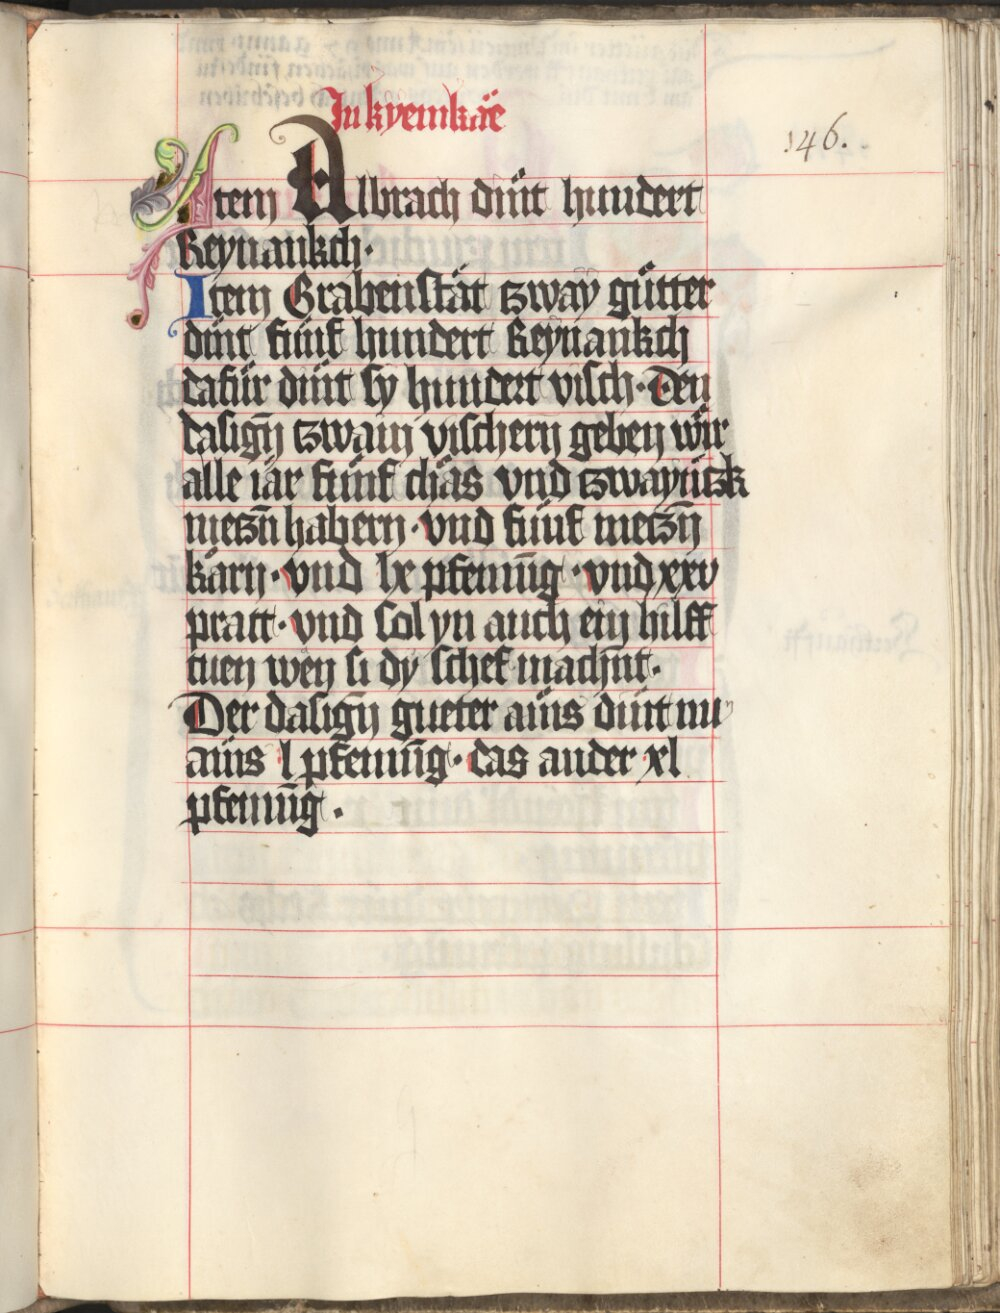 In kyemkäe
:146.
Item Albrach diüt hundert
Reynankch.
Item Grabenstät tzway gütter
diüt fiüf hundert Reynankch
dafür diüt sy hundert visch. Den
dasigñ tzwain vischern geben wir
alle iar fiüf chäs vnd tzwayntzk
metzñ habern. vnd fiüf metzñ
karn. vnd lx pfeniñg. vnd xxv
pratt. vnd sol yn auch ein hilff
tuen wen si dy schef machñt.
Der dasigñ gueter ains diüt nu
ains l pfeniñg. das ander xl
pfeniñg.